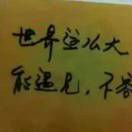 世界这么大
能遇见,不容